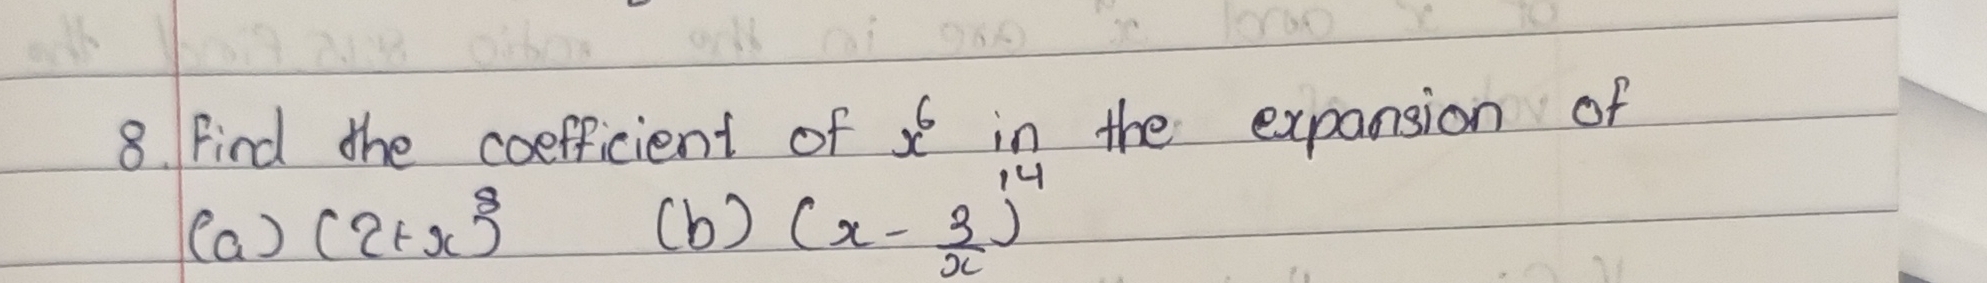 8. Find the coefficient of x⁶ in the expansion of
(a) (2+x)⁸ (b) (x - 3/x)¹⁴